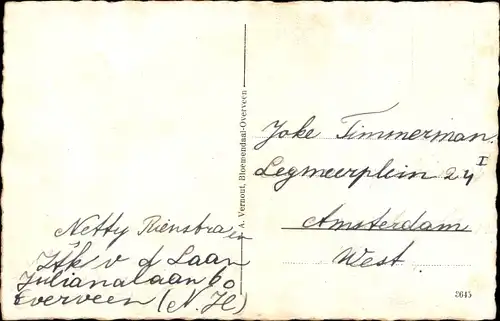 Netty Rienstra en
Itsk v d Laan
Julianalaan 60
Overveen (N. H)
A. Vernout, Bloemendaal-Overveen
Joke Timmerman.
Legmeerplein 24 I
Amsterdam
West.
3645